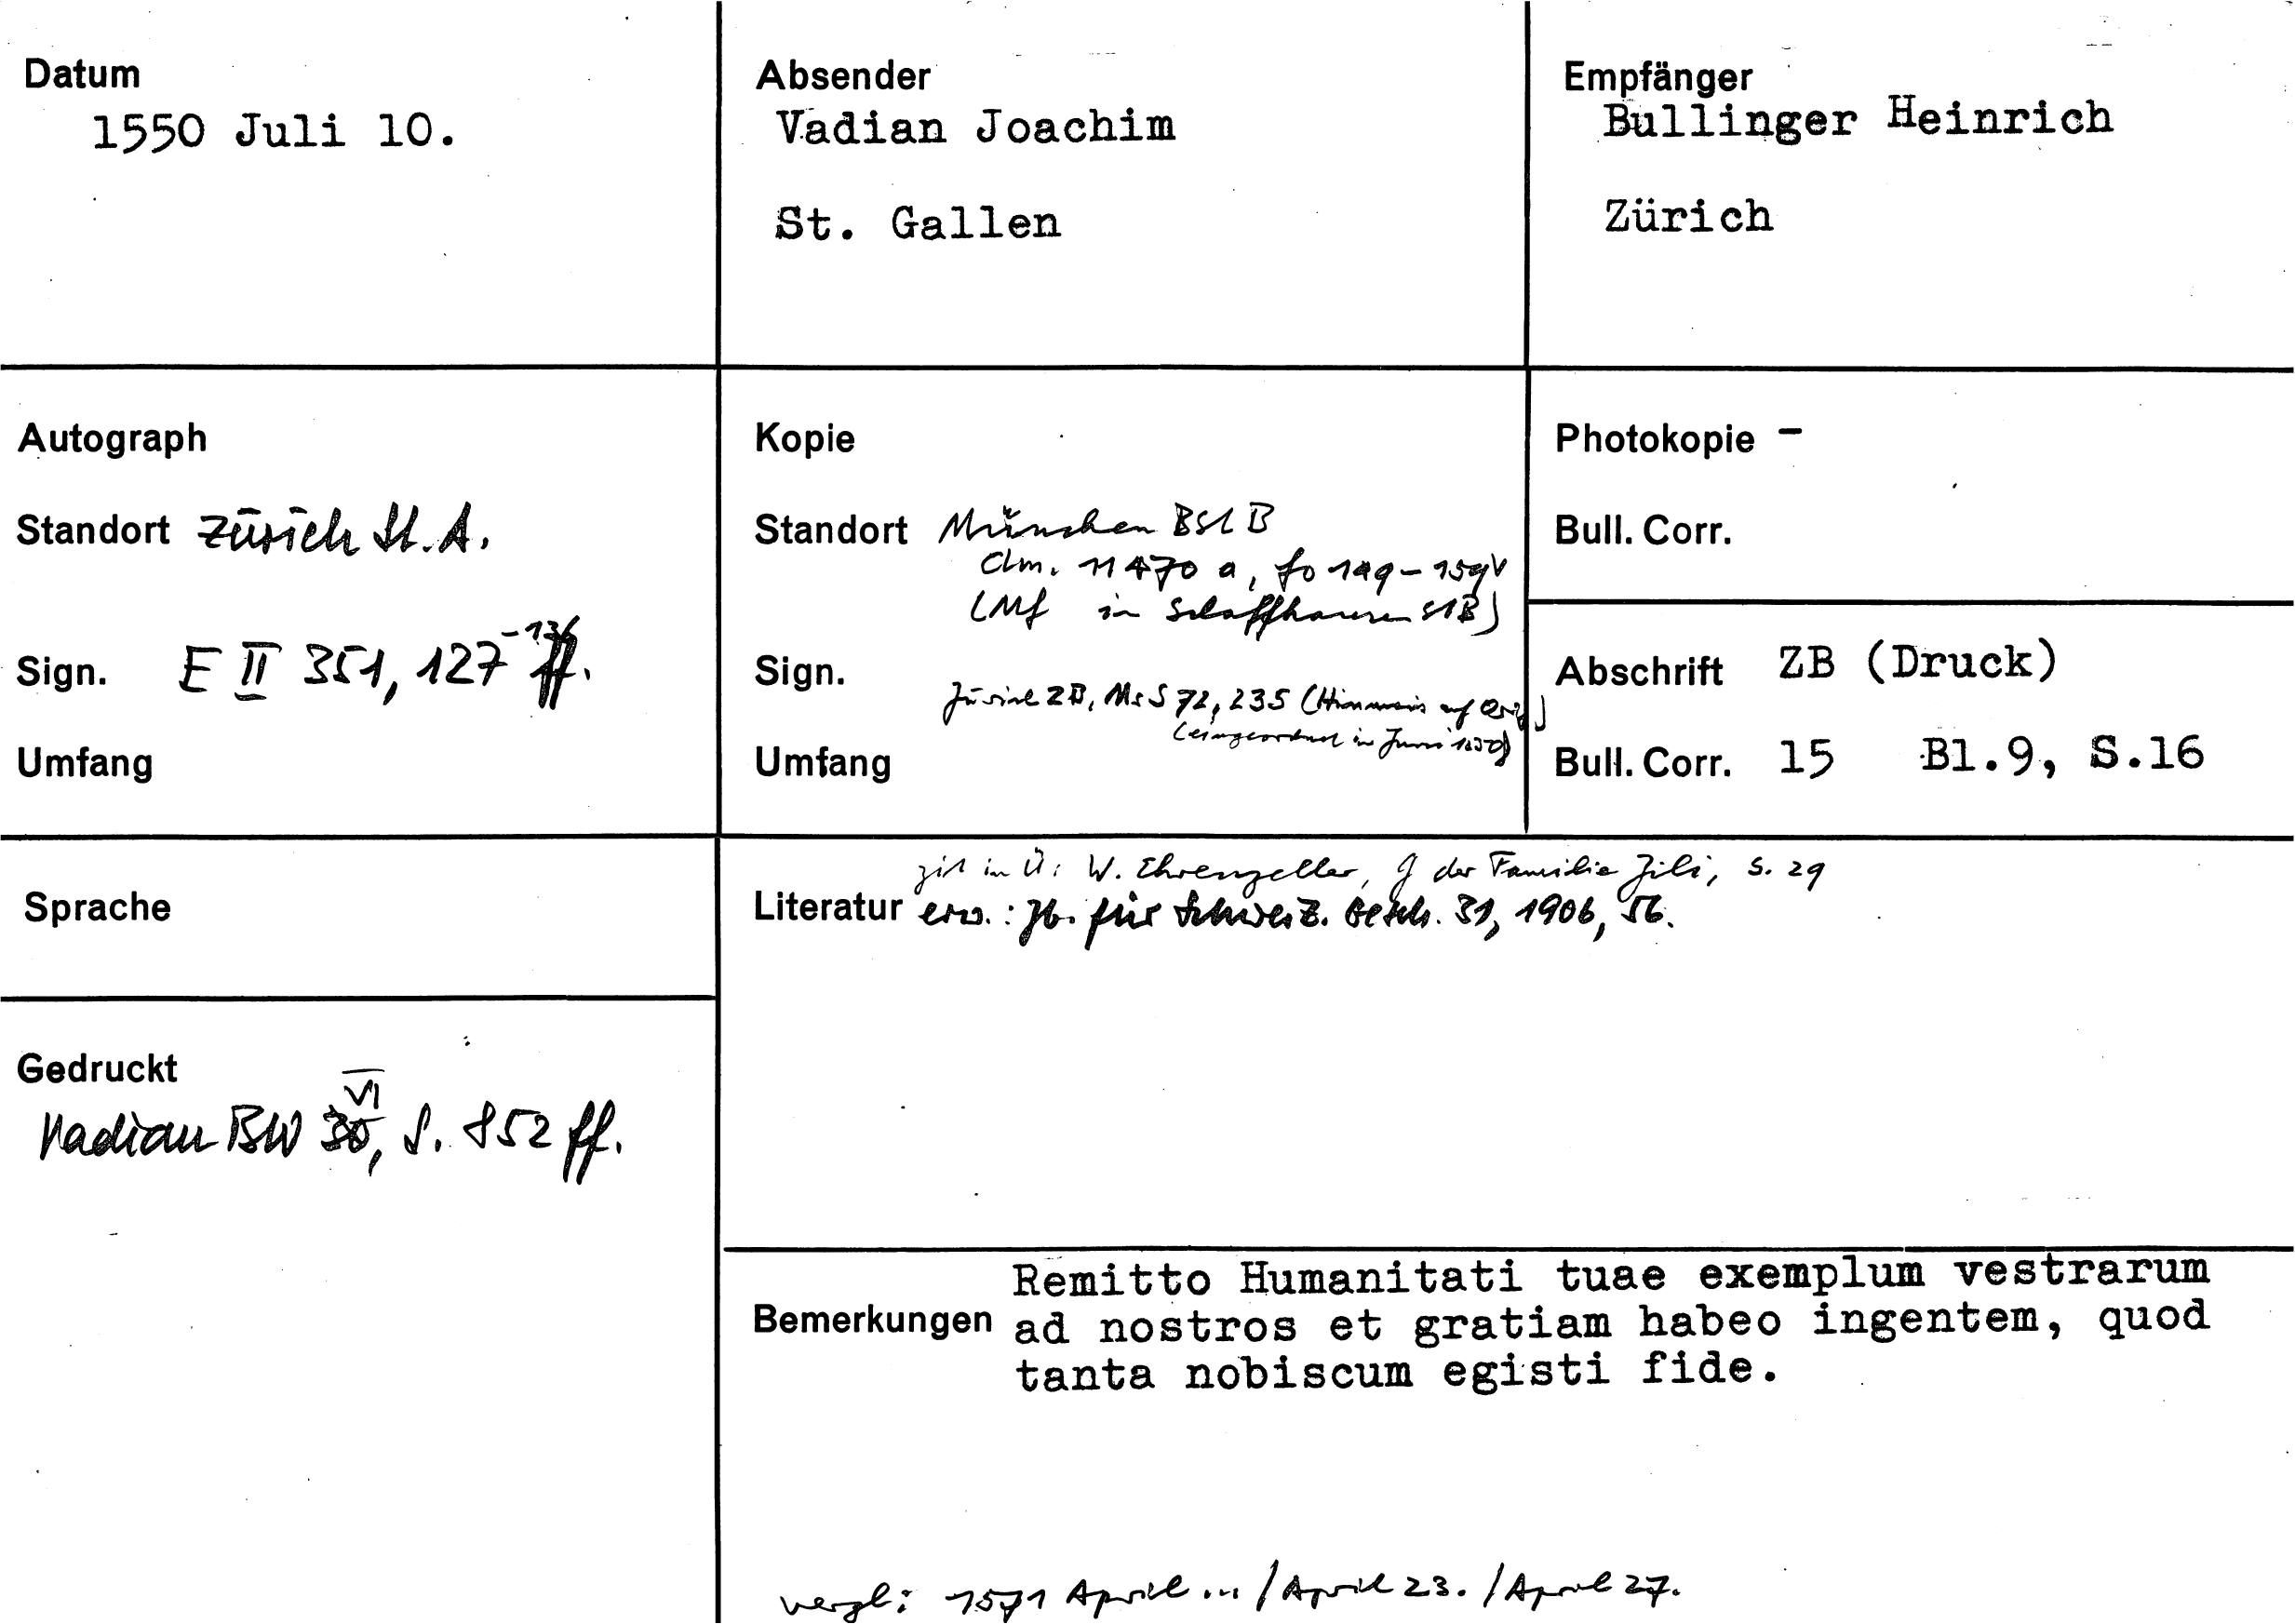 Datum
1550 Juli 10.
Absender
Vadian Joachim
St. Gallen
Empfänger
Bullinger Heinrich
Zürich
Autograph
Standort Zürich St. A.
Sign. E II 351, 127-136
Umfang
Kopie
Standort München BStB
Clm. 11470 a, fo 149-159v
(Mf in Schaffhausen StB)
Sign.
Zürich ZB, Ms S 72, 235 (Hinweis auf Orig.)
(eingeordnet in Juni 1550)
Umfang
Photokopie -
Bull. Corr.
Abschrift ZB (Druck)
Bull. Corr. 15 Bl.9, S.16
Sprache
Literatur
zit in Ü: W. Ehrenzeller, G der Familie Zili, S. 29
erw.: Jb. für Schweiz. Gesch. 31, 1906, 56.
Gedruckt
Vadian BW VI, S. 852 ff.
Bemerkungen
Remitto Humanitati tuae exemplum vestrarum
ad nostros et gratiam habeo ingentem, quod
tanta nobiscum egisti fide.
vergl: 1571 April ... / April 23. / April 27.